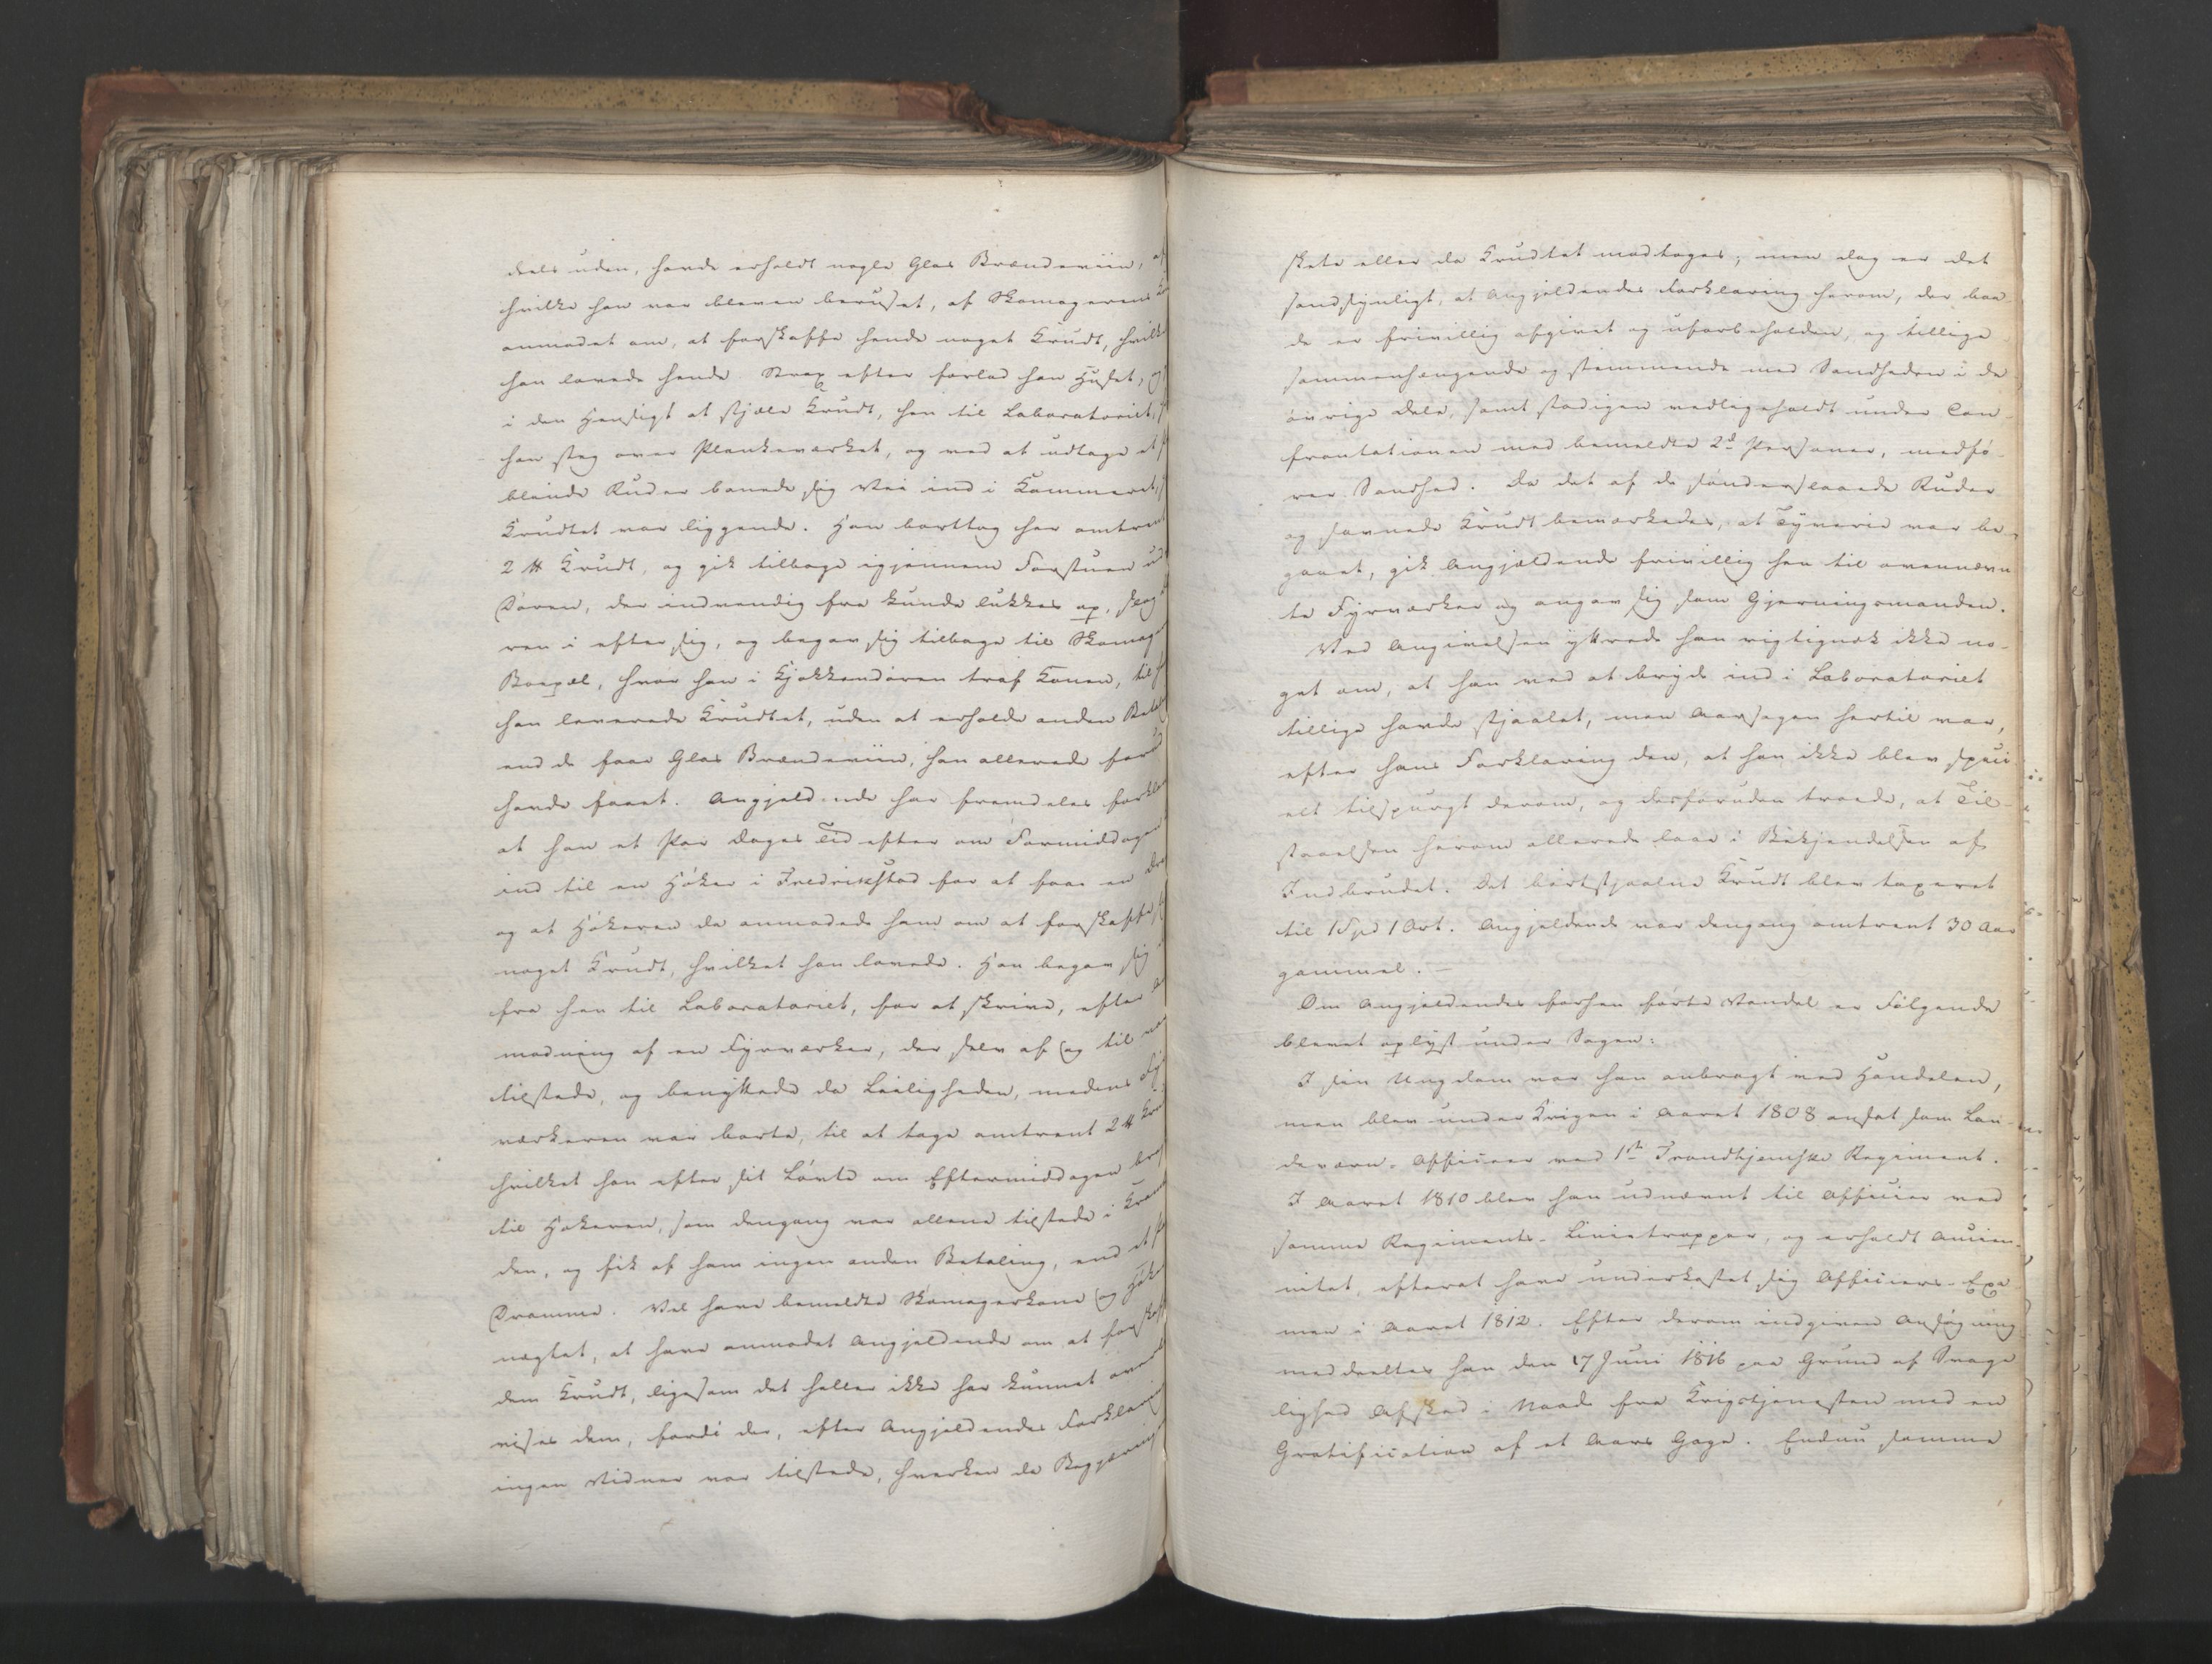 deels uden, havde erholdt nogle Glas Brændeviin, af
hvilke han var bleven beruset, af Skomagerens Ko
anmodet om, at forskaffe hende noget Krudt, hvilke
han lovede hende. Strax efter forlod han Huset, og
i den Hensigt at stjæle Krudt, hen til Laboratoriet,
han steg over Plankeværket, og ved at udtage et
blinde Ruder banede sig Vei ind i Kammeret,
Krudtet var liggende. Han borttog her omtrent
2 ℔ Krudt, og gik tilbage igjennem Forstuen ud
Døren, der indvendig fra kunde lukkes op, slog
ren i efter sig, og begav sig tilbage til Skomag
Bopæl, hvor han i Kjøkkendøren traf Konen, til
han leverede Krudtet, uden at erholde anden Betal
end de faae Glas Brændeviin, han allerede forud
havde faaet. Angjeldende har fremdeles forklar
at han et Par Dages Tid efter om Formiddagen
ind til en Høker i Fredrikstad for at faae en Dra
og at Høkeren da anmodede ham om at forskaffe
noget Krudt, hvilket han lovede. Han begav sig
fra hen til Laboratoriet, for at skrive, efter An
modning af en Fyrværker, der selv af og til var
tilstede, og benyttede da Leiligheden, medens Fyr
værkeren var borte, til at tage omtrent 2 ℔ Kru
hvilket han efter sit Løvte om Eftermiddagen bra
til Høkeren, som dengang var allene tilstede i Kram
den, og fik af ham ingen anden Betaling, end et
Dramme. Vel have bemeldte Skomagerkone og Høke
nægtet, at have anmodet Angjeldende om at forskaf
dem Krudt, ligesom det heller ikke har kunnet over
vises dem, fordi der, efter Angjeldendes Forklaring
ingen Vidner var tilstede, hverken da Begjæring
skete eller da Krudtet modtoges; men dog er det
sandsynligt, at Angjeldendes Forklaring herom, der baa
de er frivillig afgivet og uforbeholden, og tillige
sammenhængende og stemmende med Sandheden i de
øvrige Dele, samt stadigen vedligeholdt under Con
frontationen med bemeldte 2de Personer, medfø
rer Sandhed. Da det af de sønderslaaede Ruder
og savnede Krudt bemærkedes, at Tyverie var be
gaaet, gik Angjældende frivillig hen til ovennævn
te Fyrværker og angav sig som Gjerningsmanden.
Ved Angivelsen yttrede han rigtignok ikke no
get om, at han ved at bryde ind i Laboratoriet
tillige havde stjaalet, men Aarsagen hertil var,
efter hans Forklaring den, at han ikke blev speci
elt tilspurgt derom, og desforuden troede, at Til
staaelsen herom allerede laae i Bekjendelsen af
Indbrudet. Det bortstjaalne Krudt blev taxeret
til 1 Spd 1 Ort. Angjeldende var dengang omtrent 30 Aar
gammel. —
Om Angjeldendes forhen førte Vandel er Følgende
blevet oplyst under Sagen:
I sin Ungdom var han anbragt ved Handelen,
men blev under Krigen i Aaret 1808 ansat som Lan
deværn-Officeer ved 1ste Trondhjemske Regiment.
I Aaret 1810 blev han udnævnt til Officier ved
samme Regiments-Linietropper, og erholdt Ancien
nitet, efterat have underkastet sig Officiers-Exa
men i Aaret 1812. Efter derom indgiven Ansøgning
meddeeltes han den 17 Juni 1816 paa Grund af Svage
lighed Afsked i Naade fra Krigstjenesten med en
Gratification af et Aars Gage. Endnu samme